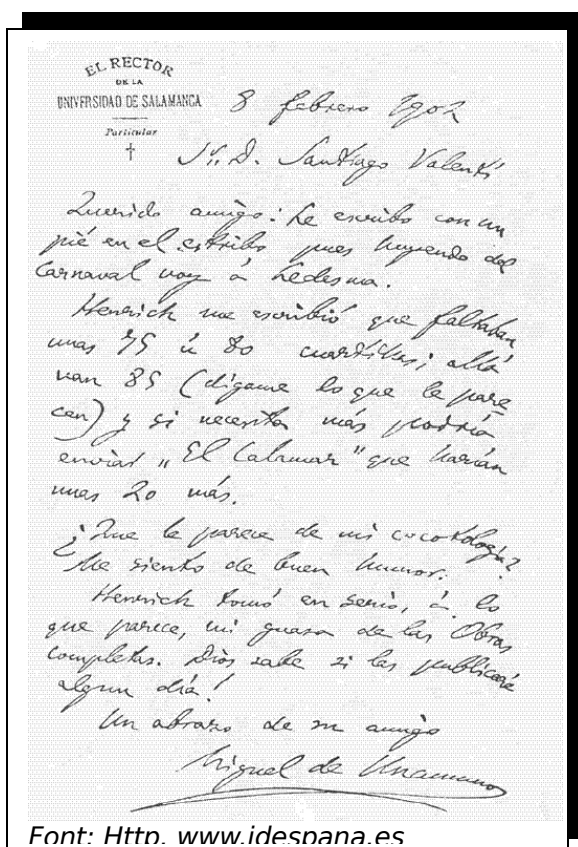 EL RECTOR
DE LA
UNIVERSIDAD DE SALAMANCA
Particular
8 febrero 1902
Sr. D. Santiago Valentí
Querido amigo: Le escribo con un
pié en el estribo pues huyendo del
Carnaval voy á Ledesma.
Henrich me escribió que faltaban
unas 75 ú 80 cuartillas; allá
van 85 (dígame lo que le pare
cen) y si necesita más podría
enviar "El Calamar" que harían
unas 20 más.
¿Que le parece de mi cocotología?
Me siento de buen humor.
Henrich tomó en serio, á lo
que parece, mi guasa de las Obras
completas. Dios sabe si las publicaré
algun día!
Un abrazo de su amigo
Miguel de Unamuno
Font: Http. www.idespana.es